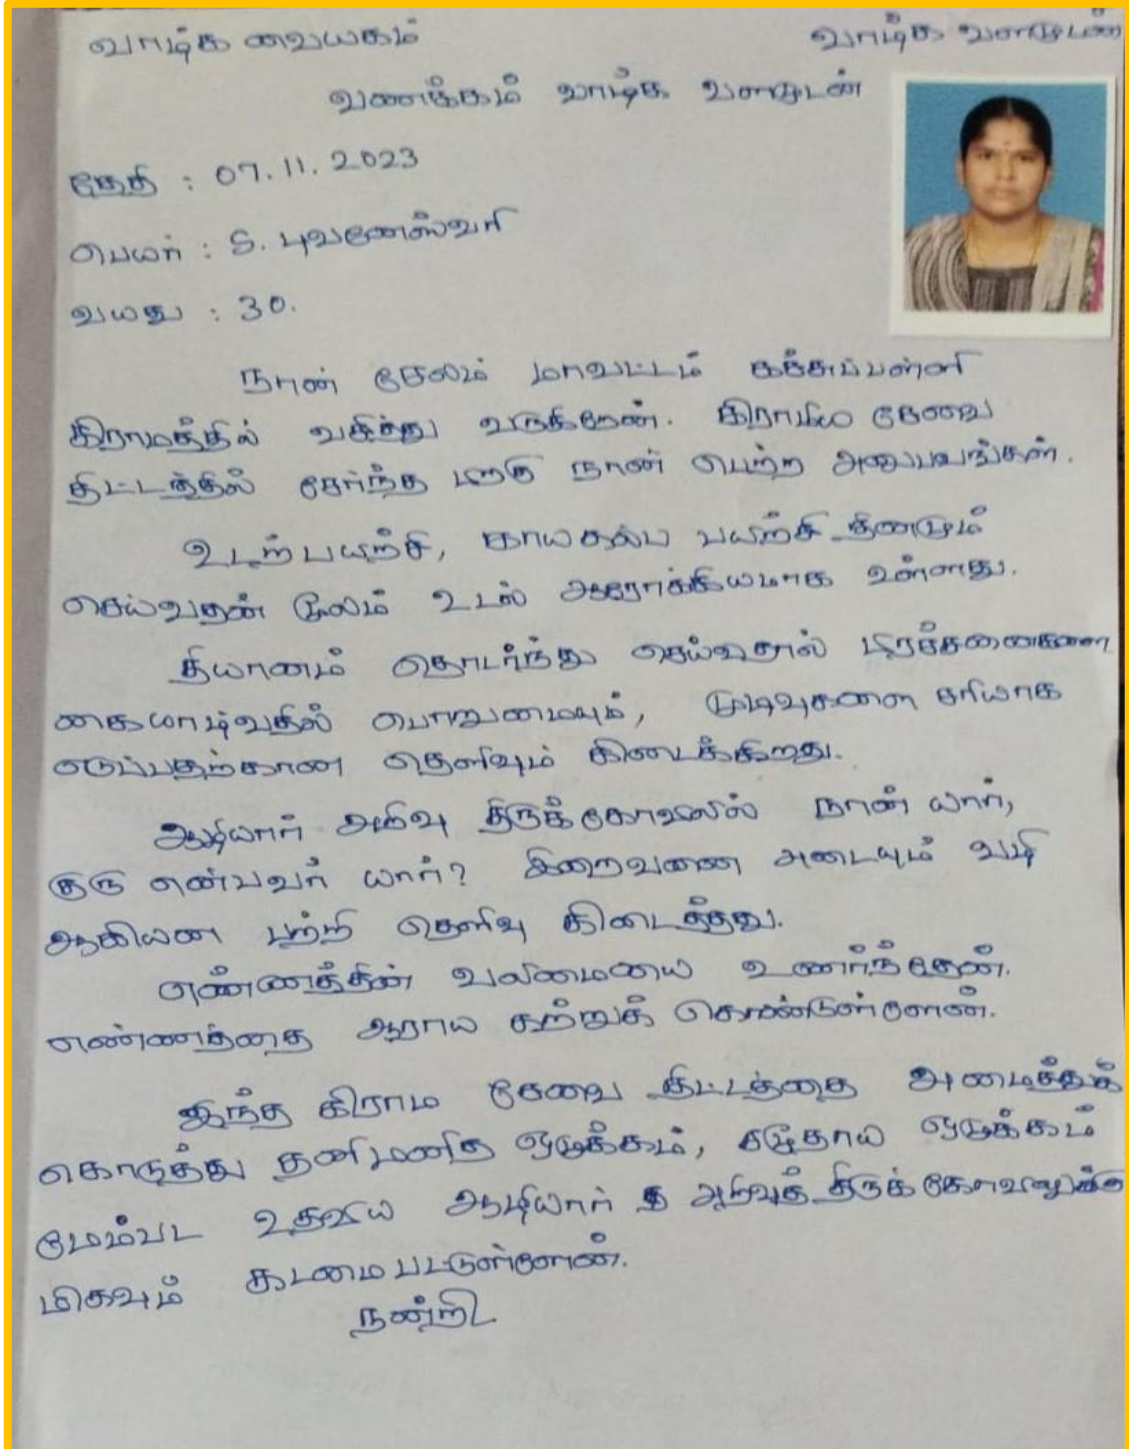 வாழ்க வையகம் வாழ்க வளமுடன்
வணக்கம் வாழ்க வளமுடன்
தேதி : 07.11.2023
பெயர் : S. புவனேஸ்வரி
வயது : 30.
நான் சேலம் மாவட்டம் கச்சுப்பள்ளி
கிராமத்தில் வசித்து வருகிறேன். கிராமிய சேவை
திட்டத்தில் சேர்ந்த பிறகு நான் பெற்ற அனுபவங்கள்.
உடற்பயற்சி, காயகல்ப பயற்சி தினமும்
செய்வதன் மூலம் உடல் ஆரோக்கியமாக உள்ளது.
தியானம் தொடர்ந்து செய்வதால் பிரச்சனைகளை
கையாழ்வதில் பொறுமையும், முடிவுகளை சரியாக
எடுப்பதற்கான தெளிவும் கிடைக்கிறது.
ஆழியார் அறிவு திருக்கோவிலில் நான் யார்,
குரு என்பவர் யார்? இறைவனை அடையும் வழி
ஆகியன பற்றி தெளிவு கிடைத்தது.
எண்ணத்தின் வலிமையை உணர்ந்தேன்.
எண்ணத்தை ஆராய கற்றுக் கொண்டுள்ளேன்.
இந்த கிராம சேவை திட்டத்தை அமைத்துக்
கொடுத்து தனிமனித ஒழுக்கம், சமுதாய ஒழுக்கம்
மேம்பட உதவிய ஆழியார் அறிவுத் திருக்கோவிலுக்கு
மிகவும் கடமைபட்டுள்ளேன்.
நன்றி